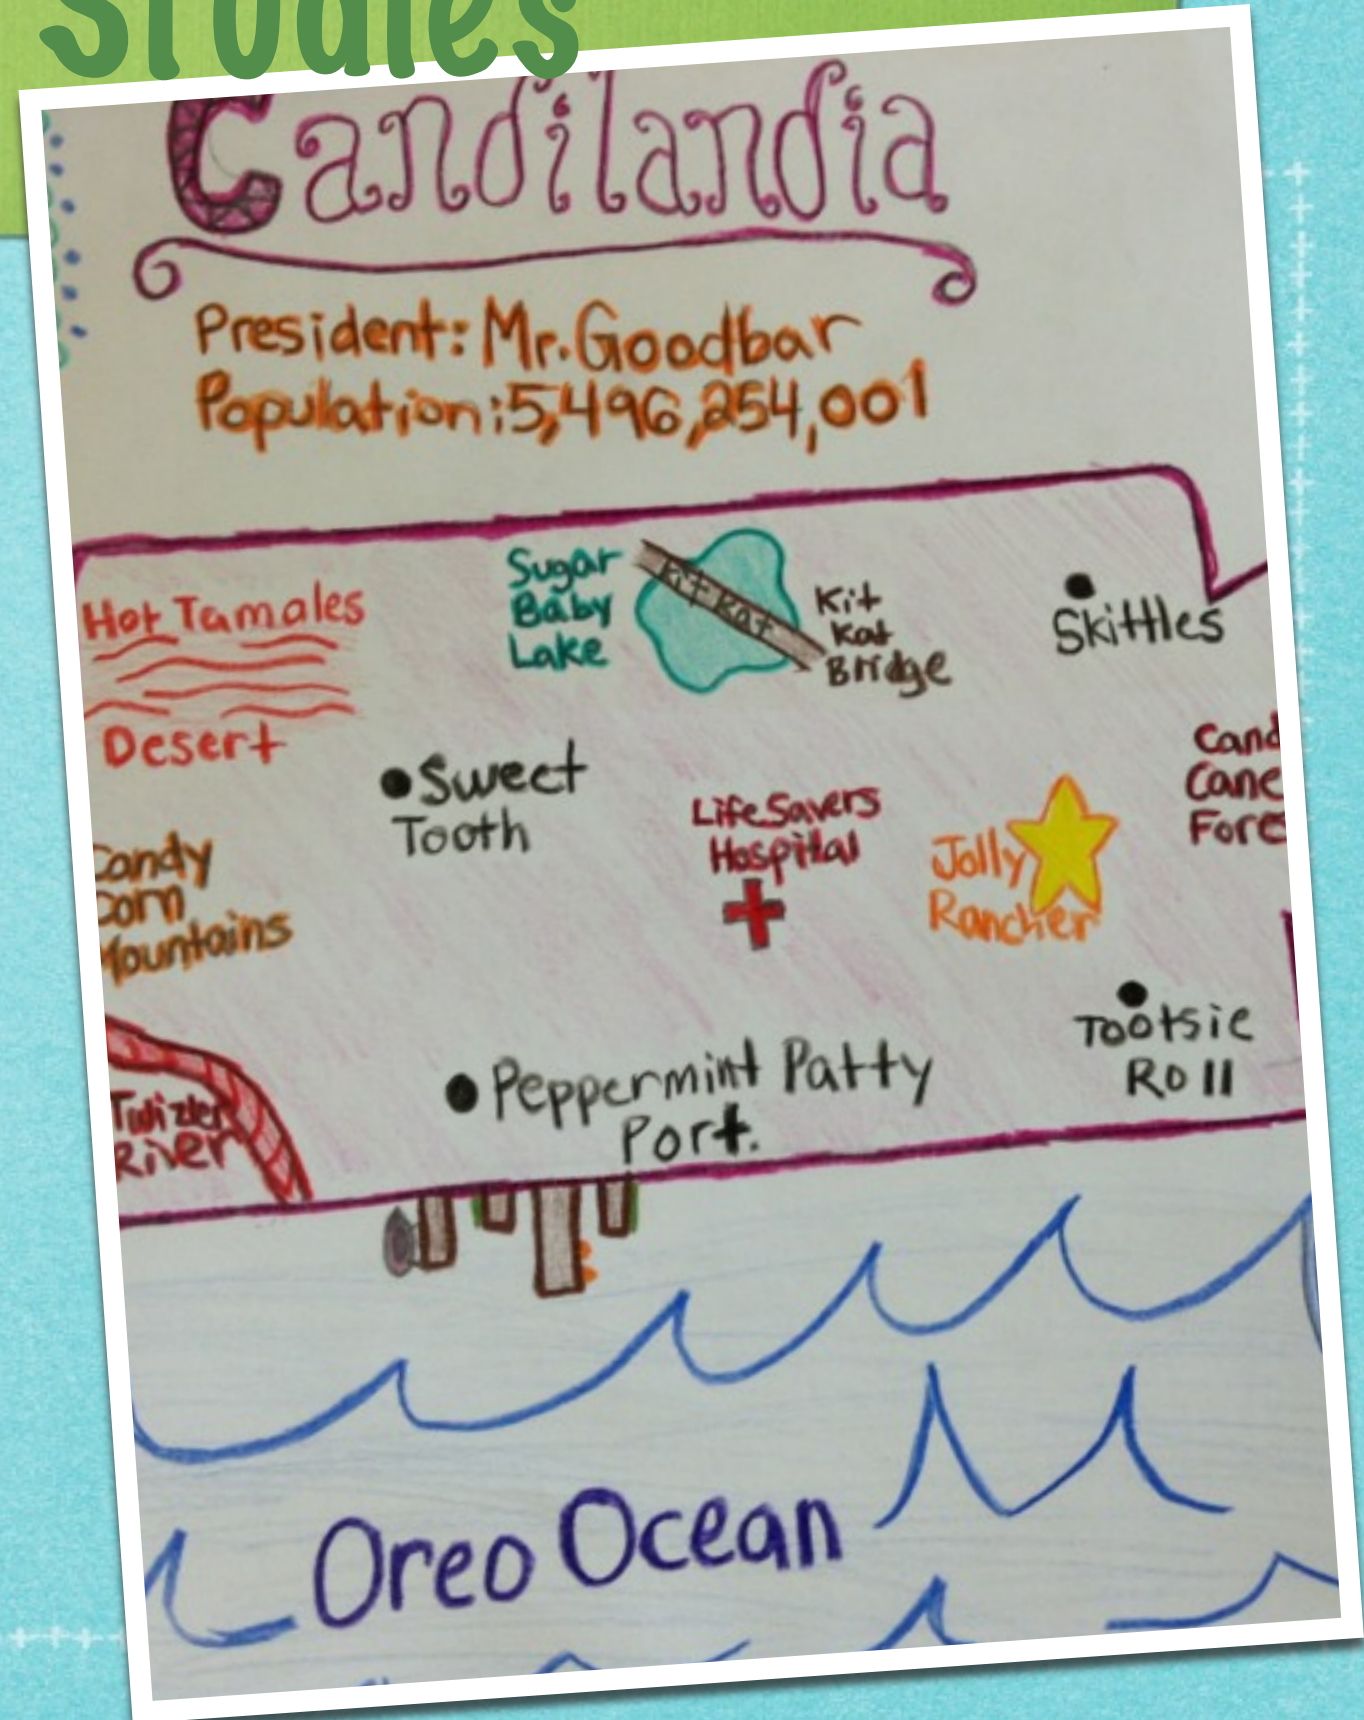 Studies
Candilandia
President: Mr. Goodbar
Population: 5,496,254,001
Hot Tamales
Desert
Sugar
Baby
Lake
Kit Kat
Kit
Kat
Bridge
Skittles
Sweet
Tooth
Life Savers
Hospital
Jolly
Rancher
Cand
Cane
Fores
Candy
Corn
Mountains
Twizler
River
Peppermint Patty
Port.
Tootsie
Roll
Oreo Ocean